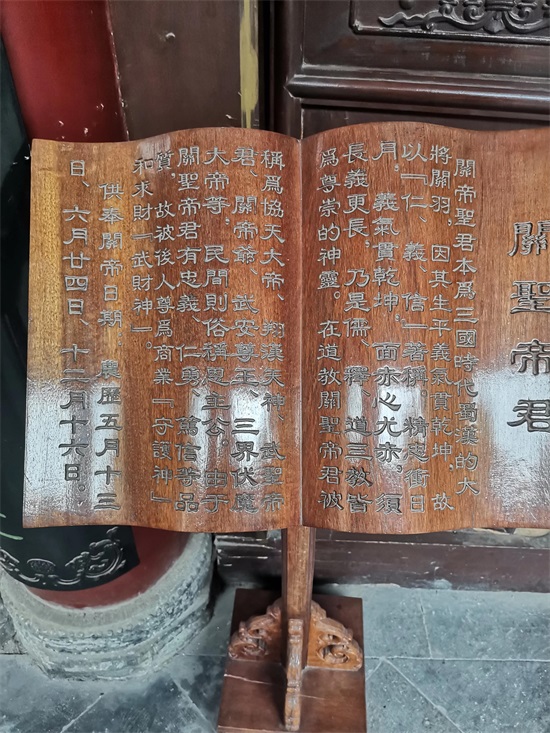 關聖帝君
關帝聖君本爲三國時代蜀漢的大
將關羽,因其生平義氣貫乾坤故
以「仁、義、信」著稱。精忠衝日
月,義氣貫乾坤,面赤心尤赤,須
長義更長,乃是儒、釋、道三教皆
爲尊崇的神靈。在道教關聖帝君被
稱爲協天大帝、翔漢天神、武聖帝
君、關帝爺、武安尊王、三界伏魔
大帝等,民間則俗稱恩主公。由于
關聖帝君有忠義、仁勇、篤信等品
質,故被後人尊爲商業「守護神」
和求財「武財神」。
供奉關帝日期 農歷五月十三
日、六月廿四日、十二月十六日。